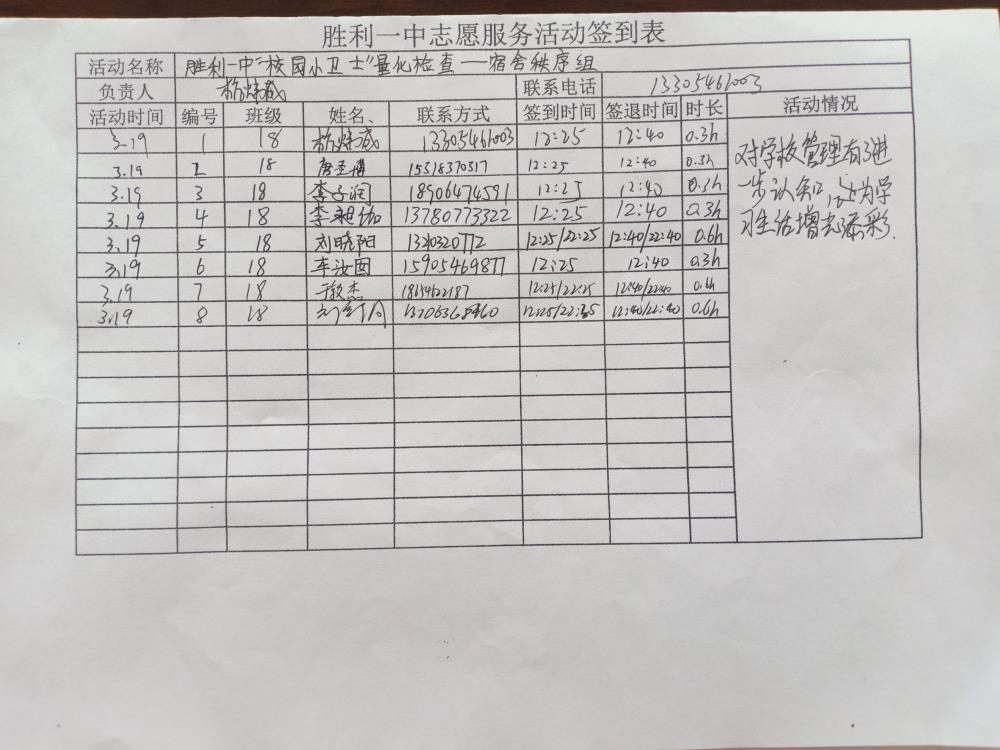 胜利一中志愿服务活动签到表
活动名称 胜利一中"校园小卫士"量化检查——宿舍秩序组
负责人 联系电话 13305461003
活动时间 编号 班级 姓名、 联系方式 签到时间 签退时间 时长 活动情况
3.19 1 18 13305461003 12:25 12:40 0.3h
3.19 2 18 15318370317 12:25 12:40 0.3h
3.19 3 18 李子润 18906474591 12:25 12:40 0.3h
3.19 4 18 李 13780773322 12:25 12:40 0.3h
3.19 5 18 刘晓阳 1320320772 12:25/22:25 12:40/22:40 0.6h
3.19 6 18 车汝 15905469877 12:25 12:40 0.3h
3.19 7 18 于毅杰 18654622187 12:25/22:25 12:40/22:40 0.6h
3.19 8 18 12:25/22:25 12:40/22:40 0.6h
对学校管理有了进
一步认知,为学
习生活增光添彩.